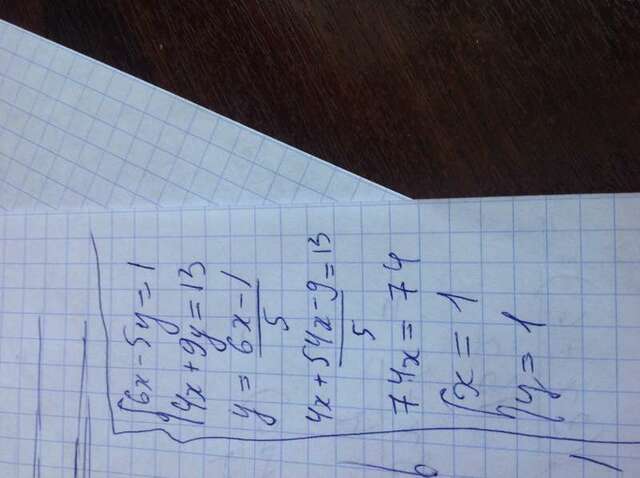 {6x - 5y = 1
4x + 9y = 13
y = (6x - 1)/5
4x + (54x - 9)/5 = 13
74x = 74
{x = 1
y = 1